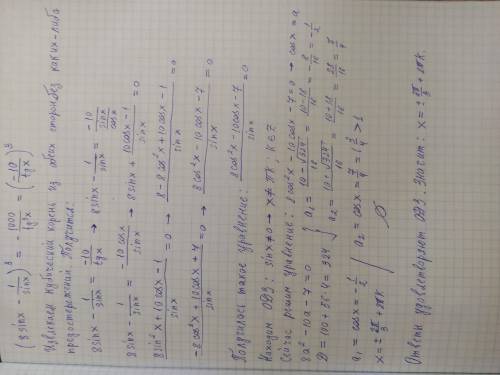 (8sinx - 1/sinx)³ = -1000/tg³x = (-10/tgx)³
Извлекаем кубический корень из обеих сторон без каких-либо
предостережений. Получится:
8sinx - 1/sinx = -10/tgx → 8sinx - 1/sinx = -10/(sinx/cosx)
8sinx - 1/sinx = -10cosx/sinx → 8sinx + (10cosx-1)/sinx = 0
(8sin²x + 10cosx - 1)/sinx = 0 → (8 - 8cos²x + 10cosx - 1)/sinx = 0
(-8cos²x + 10cosx + 7)/sinx = 0 → (8cos²x - 10cosx - 7)/sinx = 0
Получилось такое уравнение: (8cos²x - 10cosx - 7)/sinx = 0
Находим ОДЗ: sinx ≠ 0 → x ≠ πk, k ∈ Z
Сейчас решим уравнение: 8cos²x - 10cosx - 7 = 0 → cosx = a
8a² - 10a - 7 = 0
D = 100 + 56·4 = 324 { a₁ = (10 - √324)/16 = (10-18)/16 = -8/16 = -1/2
a₂ = (10 + √324)/16 = (10+18)/16 = 28/16 = 7/4
a₁ = cosx = -1/2 | a₂ = cosx = 7/4 = 1 3/4 > 1
x = ± 2π/3 + 2πk | ∅
Ответы удовлетворяет ОДЗ. Значит: x = ± 2π/3 + 2πk.